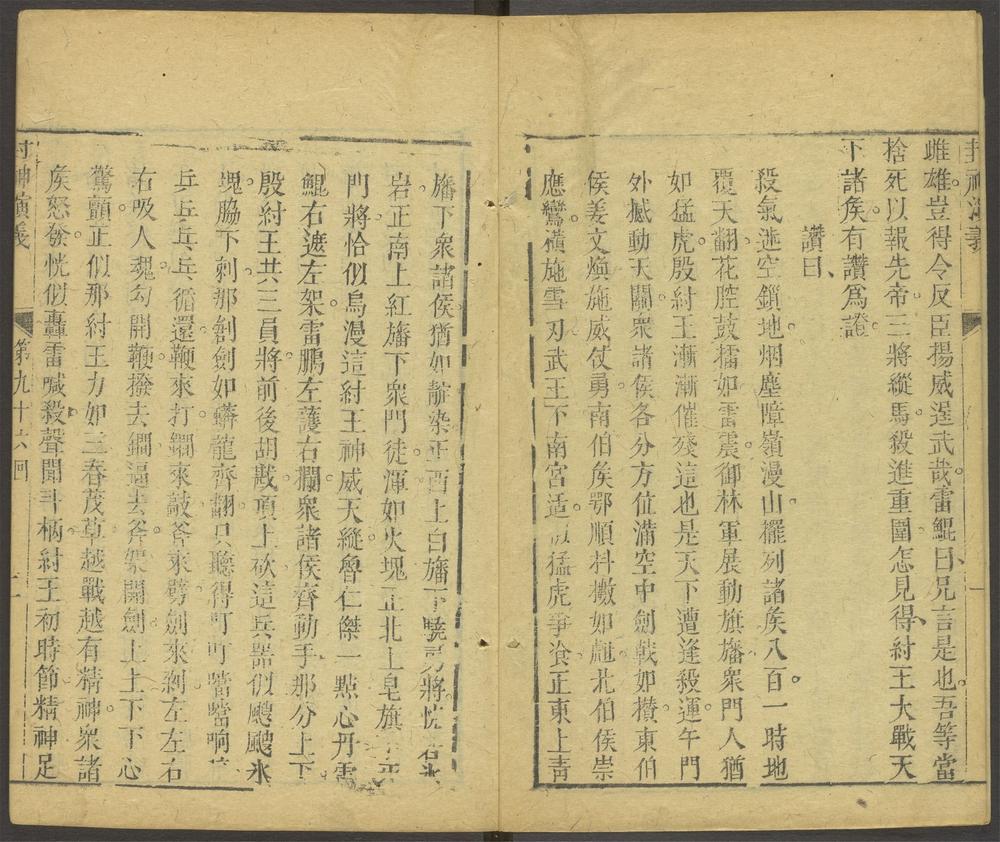 封神演義
雌雄豈得令反臣揚威逞武哉雷鯤曰兄言是也吾等當
捨死以報先帝三將縱馬殺進重圍怎見得紂王大戰天
下諸矦有讚爲證
讚曰
殺氣迷空鎖地烟塵障嶺漫山擺列諸矦八百一時地
覆天翻花腔鼓擂如雷震御林軍展動旗旛衆門人猶
如猛虎殷紂王漸漸催殘這也是天下遭逢殺運午門
外撼動天關衆諸侯各分方位滿空中劍戟如攅東伯
侯姜文煥施威仗勇南伯矦鄂順抖擻如彪北伯侯崇
應鸞橫施雪刃武王下南宮适猛虎爭飡正東上青
一
旛下衆諸侯猶如靛染正西上白旛下驍勇將恍若氷
岩正南上紅旛下衆門徒渾如火塊正北上皂旗
門將恰似烏漫這紂王神威天縱魯仁傑一點心丹雷
鯤右遮左架雷鵬左護右攔衆諸侯齊動手那分上下
殷紂王共三員將前後胡戡頂上砍這兵器似颼颼氷
塊脇下刺那劄劍如蟒龍齊翻只聽得叮叮噹噹响
乒乒乓乓循還鞭來打鐧來敲斧來劈劍來剁左左右
右吸人魂勾開鞭撥去鐧逼去斧架開劍上上下下心
驚顫正似那紂王力如三春茂草越戰越有精神衆諸
矦怒發恍似轟雷喊殺聲聞斗柄紂王初時節精神足
封神演義
第九十六回
二